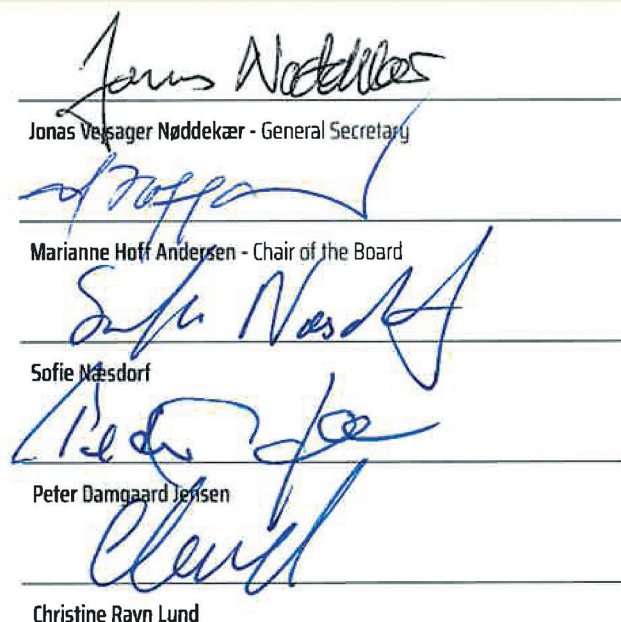 Jonas Nøddekær
Jonas Vejsager Nøddekær - General Secretary
Marianne Hoff Andersen - Chair of the Board
Sofie Næsdorf
Sofie Næsdorf
Peter Damgaard Jensen
Christine Ravn Lund